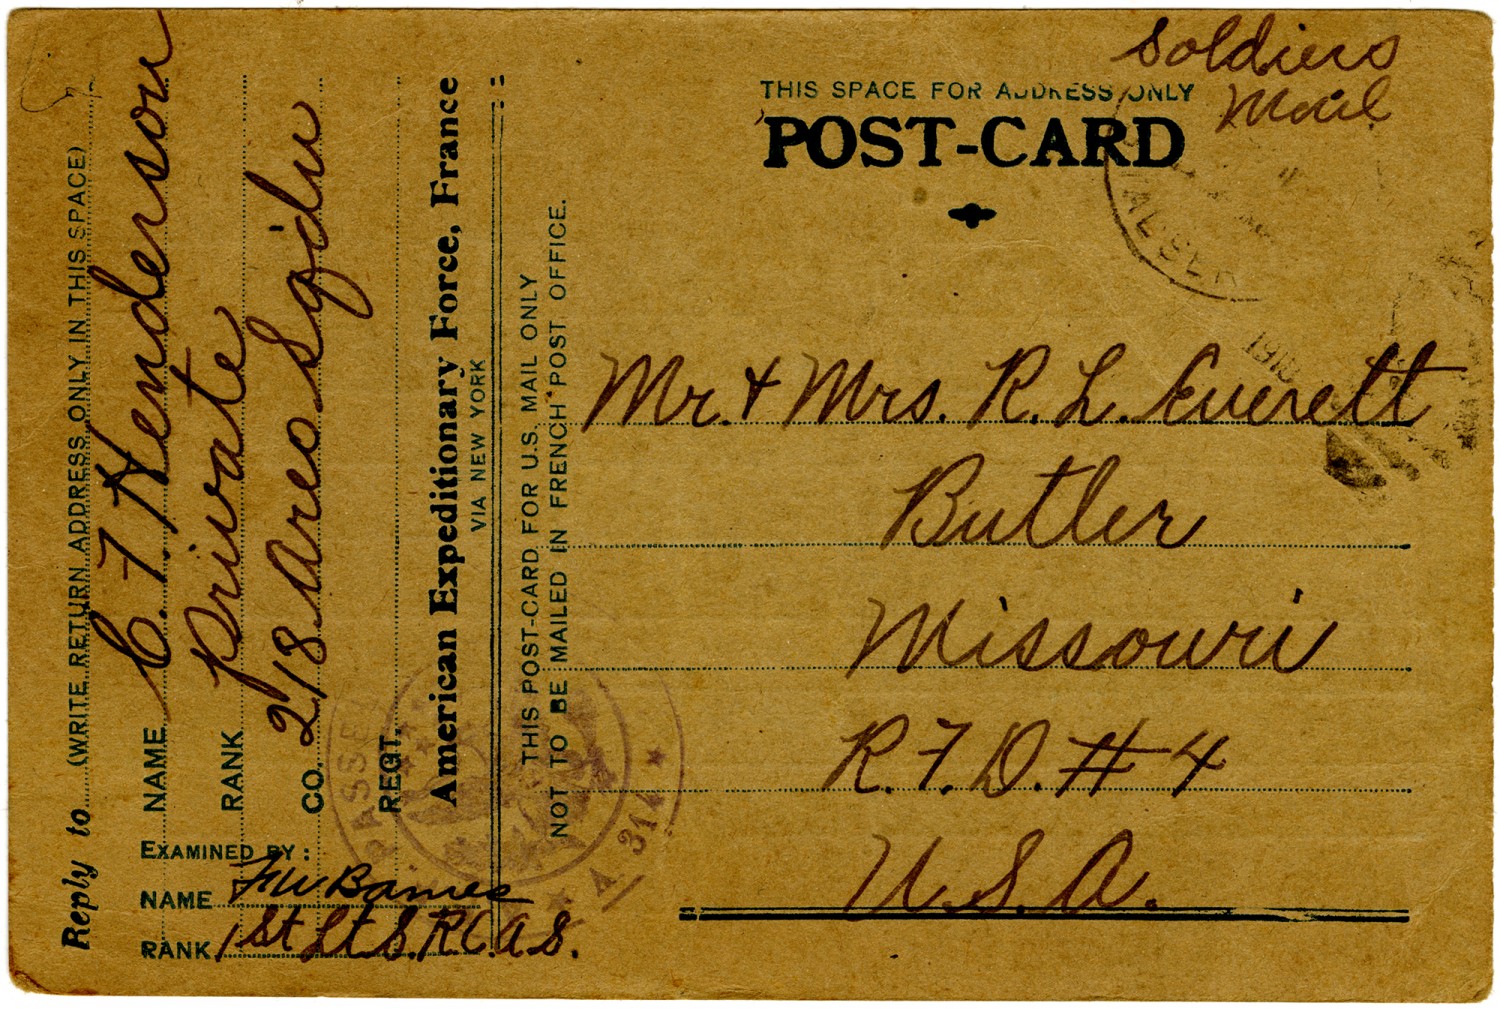 Soldiers
Mail
THIS SPACE FOR ADDRESS ONLY
POST-CARD
1918
Mr. & Mrs. R. L. Everett
Butler
Missouri
R.F.D. #4
U.S.A.
Reply to (WRITE RETURN ADDRESS ONLY IN THIS SPACE)
NAME C. F. Henderson
RANK Private
CO. 218 Areo Sq'd'n
REGT.
American Expeditionary Force, France
VIA NEW YORK
THIS POST-CARD FOR U.S. MAIL ONLY
NOT TO BE MAILED IN FRENCH POST OFFICE.
EXAMINED BY:
NAME FW Barnes
RANK 1st Lt S.R.C.A.S.
PASSED
A. 314